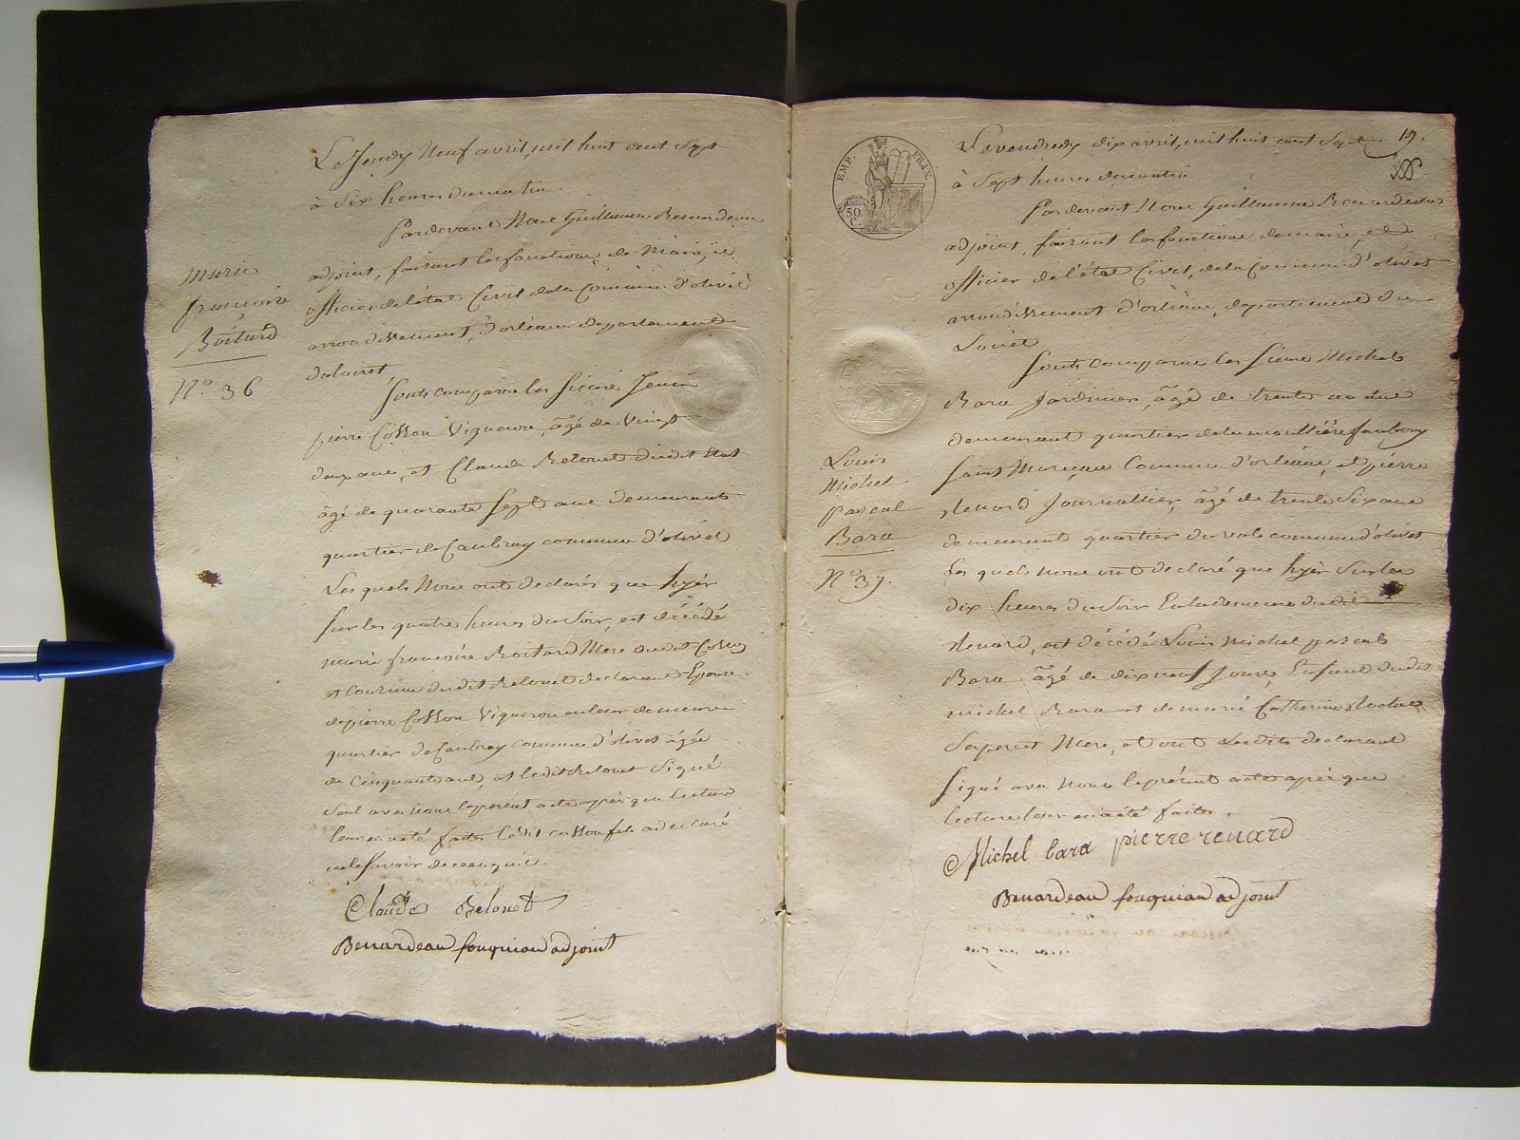 Le Jeudy Neuf avril, mil huit cent Sept
à Six heures du matin
Pardevant Nous Guillaume Benardeau
adjoint, faisant les fonctions de Maire, et
officier de l'état Civil de la Commune d'olivet
arrondissement d'orléans departement
du loiret
marie
françoise
Boitard
N.º 36
Sont comparus les Sieurs Jean
pierre Cosson Vigneron, âgé de Vingt
deux ans, et Claude Relouet dudit etat
âgé de quarante Sept ans demeurants
quartier de Caubray commune d'olivet
Les quels Nous ont declarés que hyer
sur les quatre heures du Soir, est décédé
marie françoise Boitard Mere dudit Cosson
et Cousine dudit Relouet declarant Epouse
de pierre Cosson Vigneron au leur demeure
quartier de Caubray commune d'olivet âgée
de Cinquante ans, et ledit Relouet Signé
Seul avec nous le present acte après que lecture
leur en a été faite Ledit cosson fils a declaré
ne le Savoir de ce enquis.
Claude Relouet
Benardeau fouqueau adjoint
19.
Le vendredy dix avril, mil huit cent Sept
à Sept heures du matin
EMP. FRAN.
50
C.
Pardevant Nous Guillaume Benardeau
adjoint, faisant les fonctions de maire, et
officier de l'état Civil, de la Commune d'olivet
arrondissement d'orléans, departement du
Loiret
Sont comparus les Sieurs Michel
Bara Jardinier, âgé de trente un ans
demeurant quartier de la mouillère faubourg
Saint Marceau Commune d'orléans, et pierre
Renard Journallier, âgé de trente Six ans
demeurant quartier du val commune d'olivet
Louis
Michel
pascal
Bara
N.º 37.
Les quels nous ont declaré que hyèr Sur les
dix heures du Soir En la demeure dudit
Renard, est décédé Louis Michel pascal
Bara âgé de dix neuf Jours, Enfant dudit
michel Bara et de marie Catherine
Sa mere, et ont Lesdits declarant
Signé avec Nous le présent acte après que
lecture leur en a été faite.
Michel bara pierre renard
Benardeau fouqueau adjoint